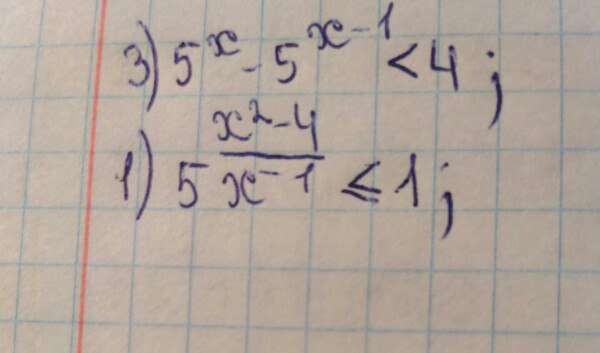 3) 5^x - 5^{x-1} < 4;
1) 5^{\frac{x^2-4}{x-1}} ≤ 1;